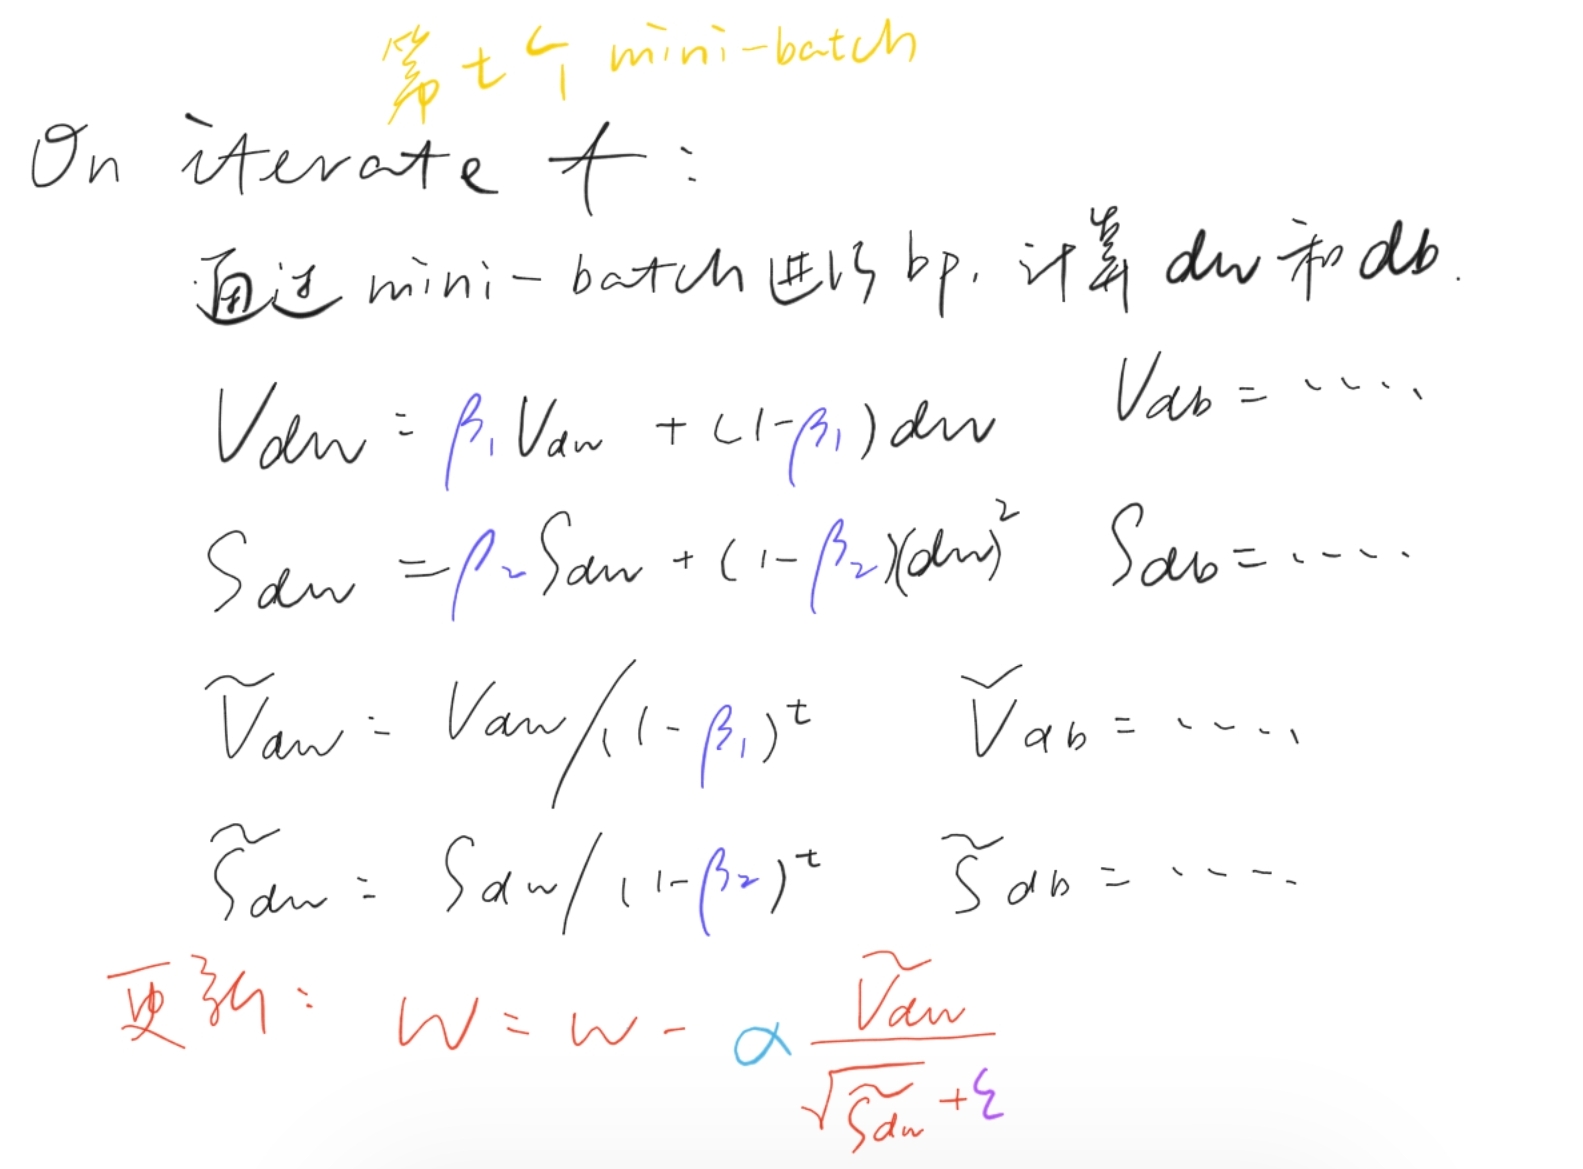 第t个 mini-batch
On iterate t:
通过mini-batch进行bp,计算dw和db.
Vdw = β₁Vdw + (1-β₁)dw Vdb = ....
Sdw = β₂Sdw + (1-β₂)(dw)² Sdb = ....
Ṽdw = Vdw/(1-β₁)ᵗ Ṽdb = ....
S̃dw = Sdw/(1-β₂)ᵗ S̃db = ....
更新: W = w - α Ṽdw / √S̃dw + ε